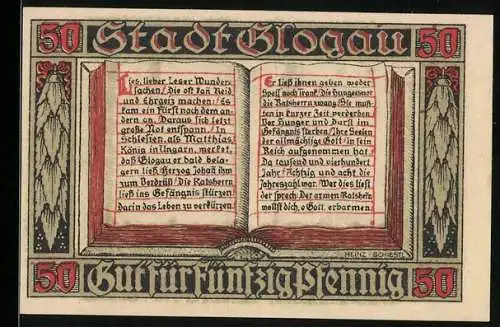 50 Stadt Glogau 50
Lies, lieber Leser Wunder-
sachen/ Die oft kañ Neid
und Ehrgeiz machen/ Es
kam ein Fürst nach dem an-
dern an. Daraus sich letzt
große Not entspann. In
Schlesien, als Matthias
König in Ungarn, merket,
daß Glogau er bald bela-
gern ließ, Herzog Johañ ihm
zum Verdrüß/ Die Ratsherrn
ließ ins Gefängnis stürzen,
darin das Leben zu verkürzen.
Er ließ ihnen geben weder
Speis noch Trank/ die Hungersnot
die Ratsherrn zwang/ Sie muß-
ten in kurzer Zeit verderben
Vor Hunger und Durst im
Gefängnis sterben/ Ihre Seelen
der allmächtige Gott/ in sein
Reich aufgenommen hat
Da tausend und vierhundert
Jahr/ Achtzig und acht die
Jahreszahl war. Wer dies liest
der sprech: Der armen Ratsherrn
wollst dich, o Gott, erbarmen.
HEINZ SCHIESTL
50 Gut für Fünfzig Pfennig 50